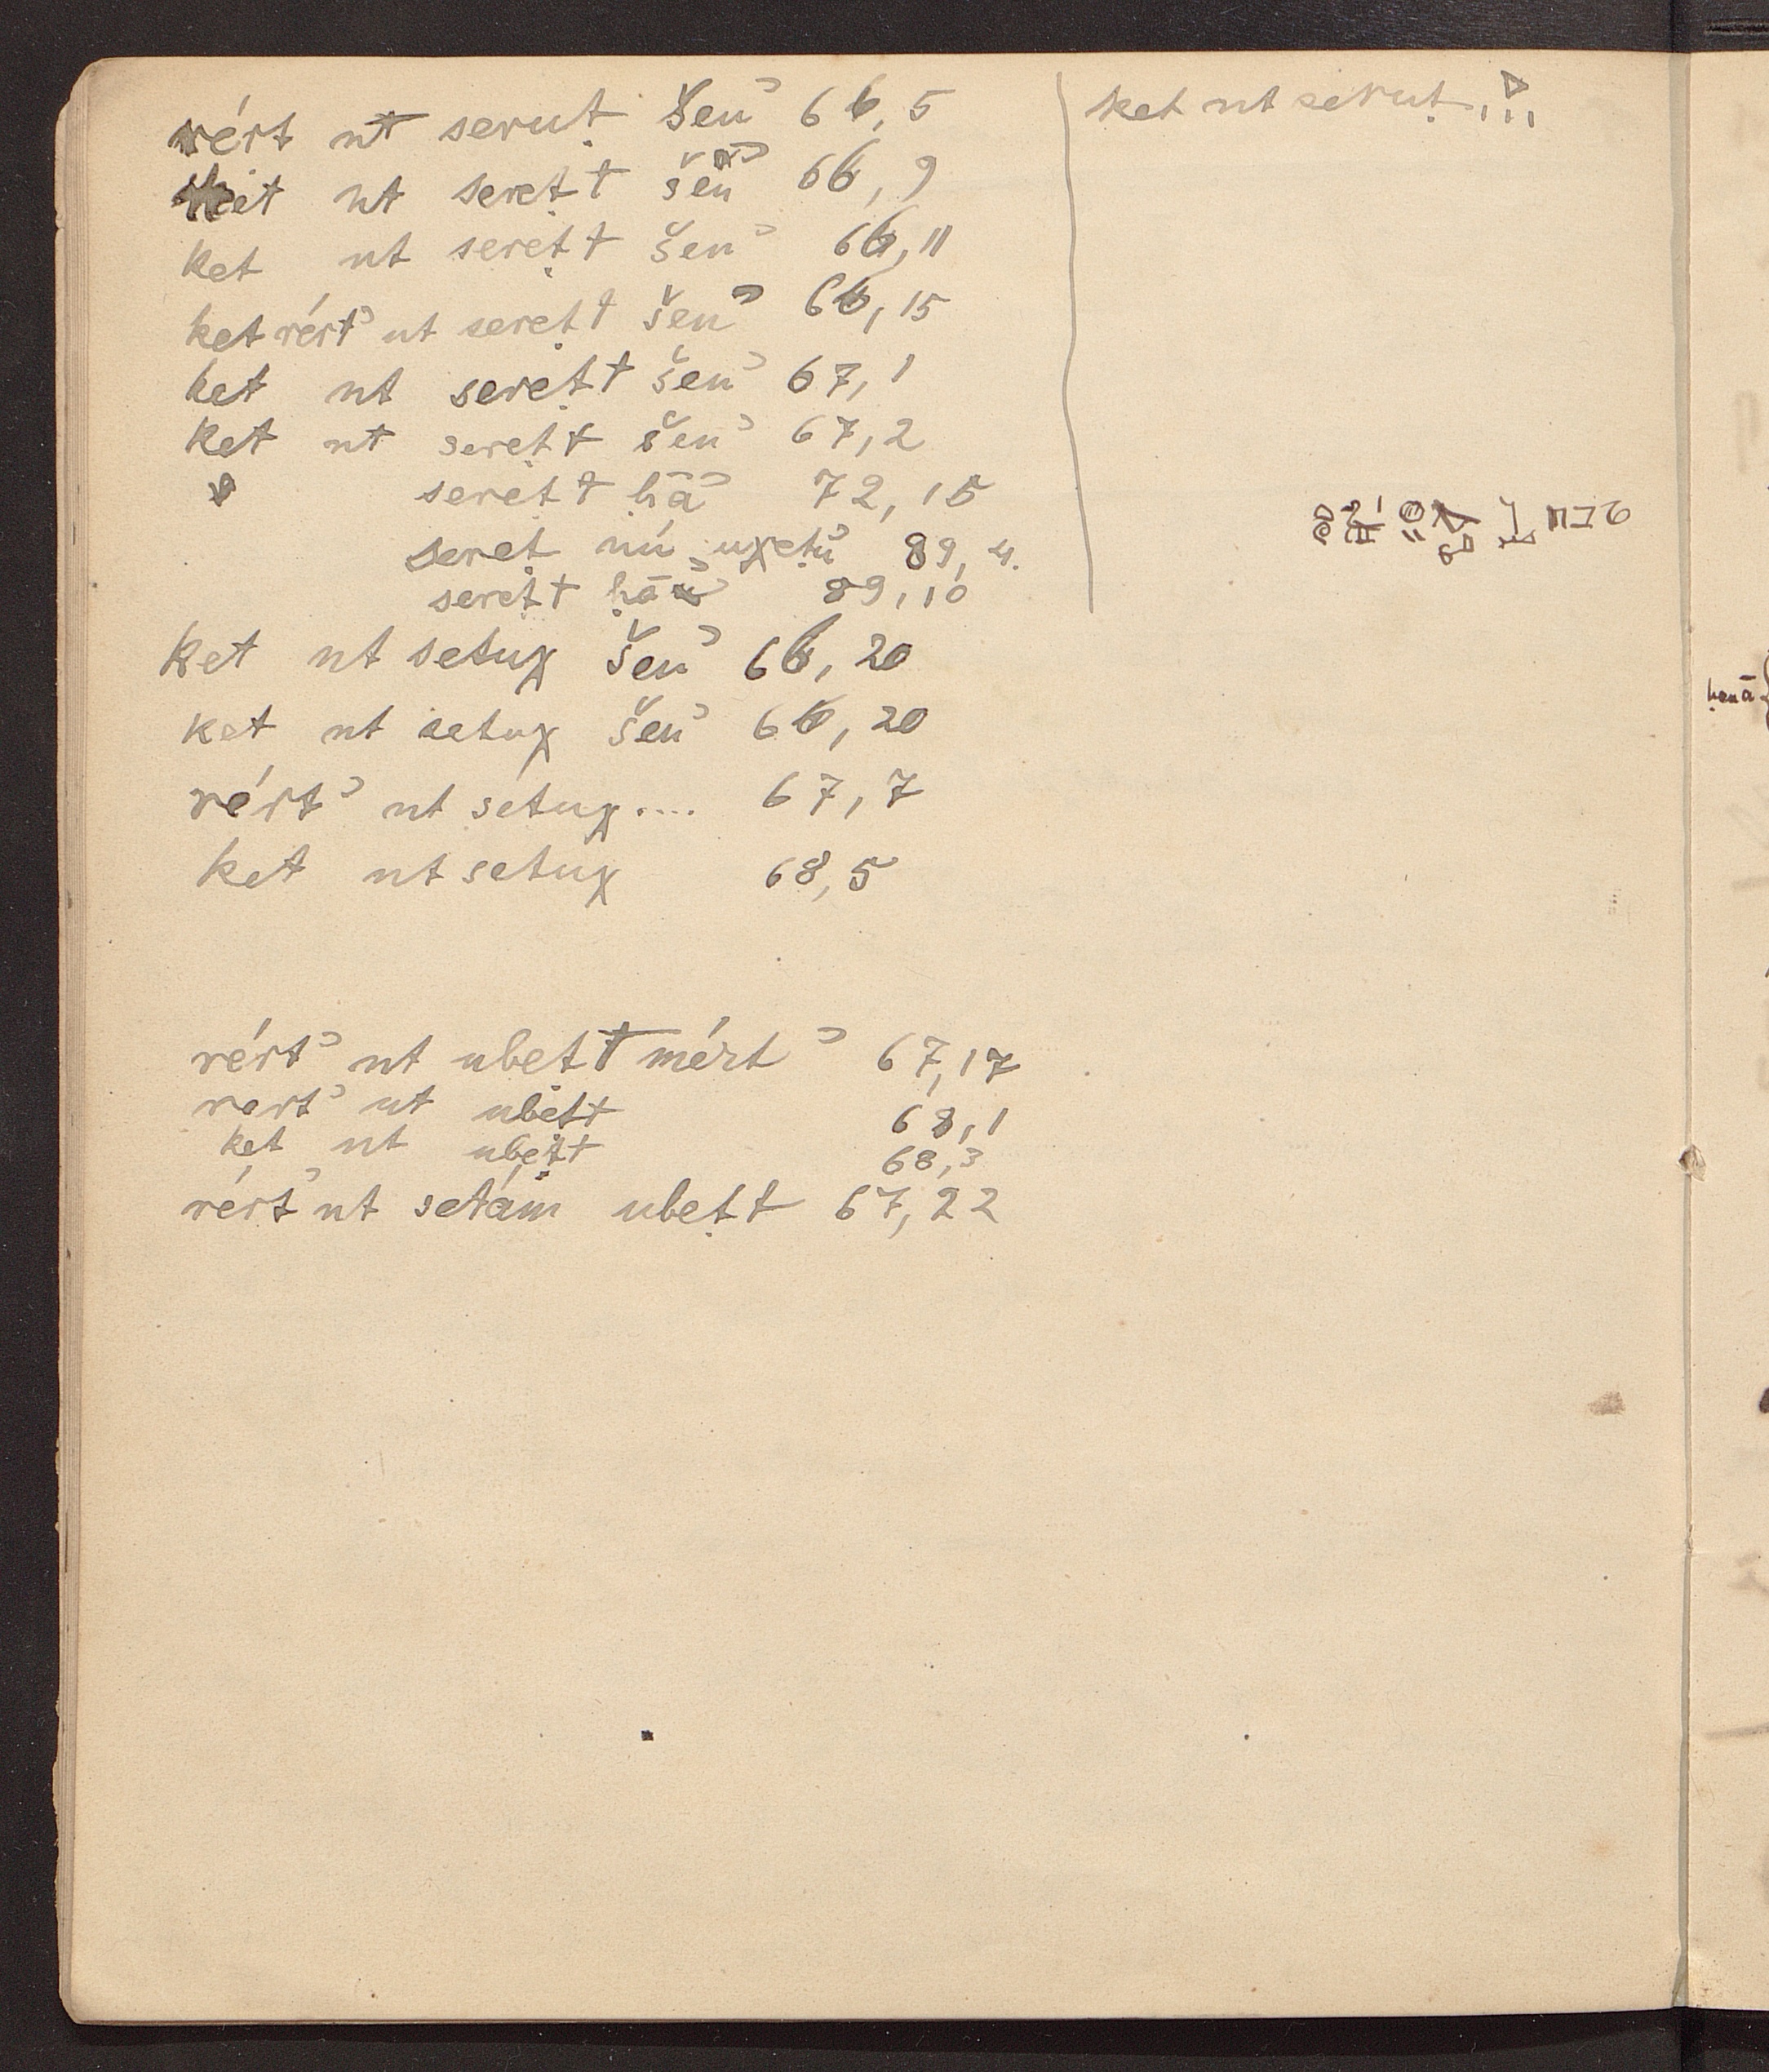 rért nt seruṭ šen᾿ 66, 5
ket nt sereṭt šen᾿ 66, 9
ket nt sereṭt šen᾿ 66, 11
ket rért᾿ nt sereṭt šen᾿ 66, 15
ket nt sereṭt šen᾿ 67, 1
ket nt sereṭt šen᾿ 67, 2
sereṭt ḥā᾿ 72, 15
sereṭ nú uχeṭu᾿ 89, 4.
sereṭt ḥā᾿ 89, 10
ket nt setuχ šen᾿ 66, 20
ket nt setuχ šen᾿ 66, 20
rért᾿ nt setuχ.... 67, 7
ket nt setuχ 68, 5
rért᾿ nt ubeṭt mért᾿ 67, 17
rert᾿ nt ubeṭt 68, 1
ket nt ubeṭt 68, 3
rért᾿ nt setám ubeṭt 67, 22
ket nt seruṭ
ḥenā